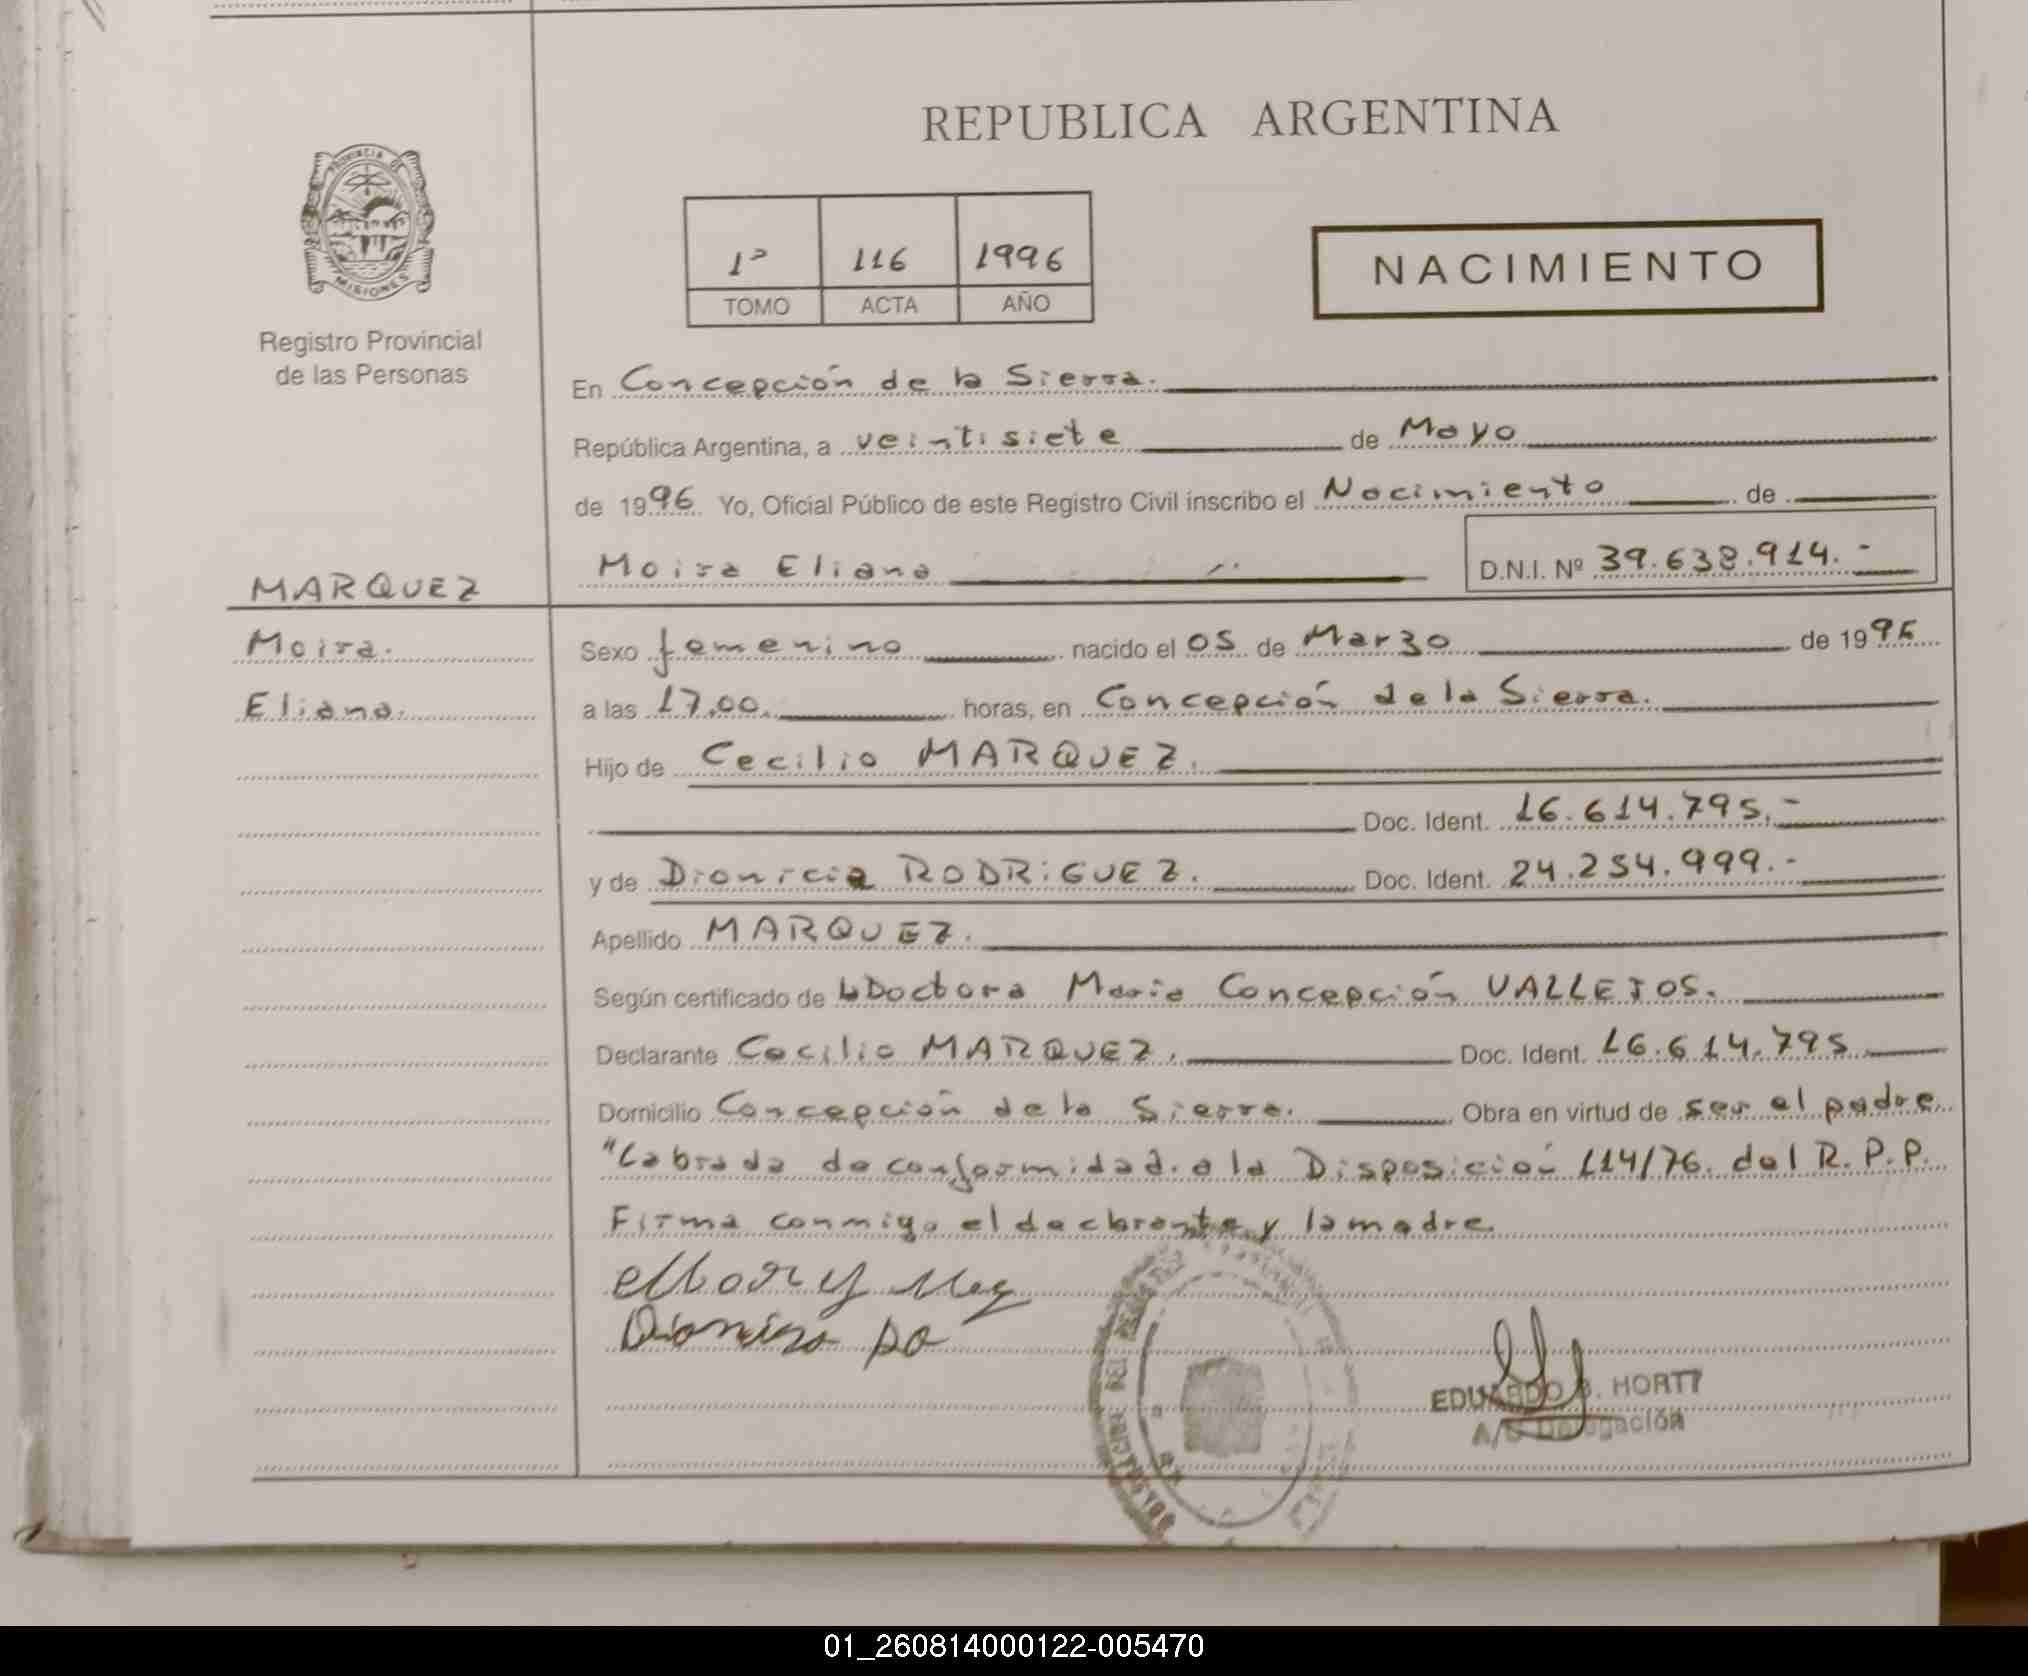 REPUBLICA ARGENTINA
PROVINCIA DE
MISIONES
Registro Provincial
de las Personas
1º 116 1996
TOMO ACTA AÑO
NACIMIENTO
En Concepción de la Sierra.
República Argentina, a veintisiete de Mayo
de 1996 Yo, Oficial Público de este Registro Civil inscribo el Nacimiento de
Moira Eliana D.N.I. Nº 39.638.914.-
MARQUEZ
Moira.
Eliana.
Sexo femenino nacido el 05 de Marzo de 1996
a las 17,00. horas, en Concepción de la Sierra.
Hijo de Cecilio MARQUEZ.
Doc. Ident. 16.614.795.-
y de Dionicia RODRiGUEZ. Doc. Ident. 24.254.999.-
Apellido MARQUEZ.
Según certificado de la Doctora Maria Concepción VALLEJOS.
Declarante Cecilio MARQUEZ. Doc. Ident. 16.614.795
Domicilio Concepción de la Sierra. Obra en virtud de ser el padre
"Labrada de conformidad a la Disposición 114/76. del R.P.P.
Firma conmigo el declarante y la madre.
EDUARDO HORTT
A/C Delegación
01_260814000122-005470